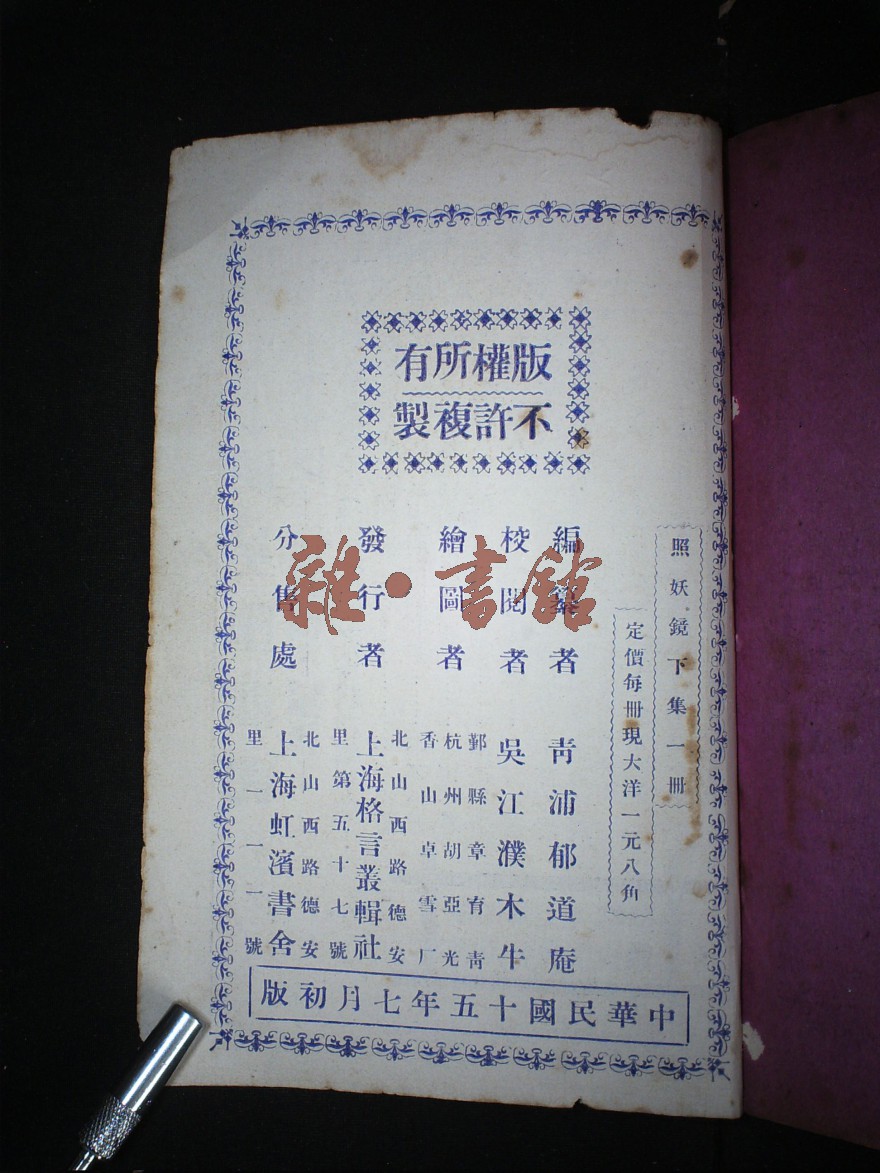 版權所有
不許複製
照妖鏡下集一冊
定價每冊現大洋一元八角
編纂者 青浦郁道庵
校閱者 吳江濮木牛
繪圖者 鄞縣章育青
杭州胡亞光
香山卓雪厂
發行者 北山西路德安
上海格言叢輯社
里第五十七號
分售處 北山西路德安
上海虹濱書舍
里一一一號
中華民國十五年七月初版
雜·書館